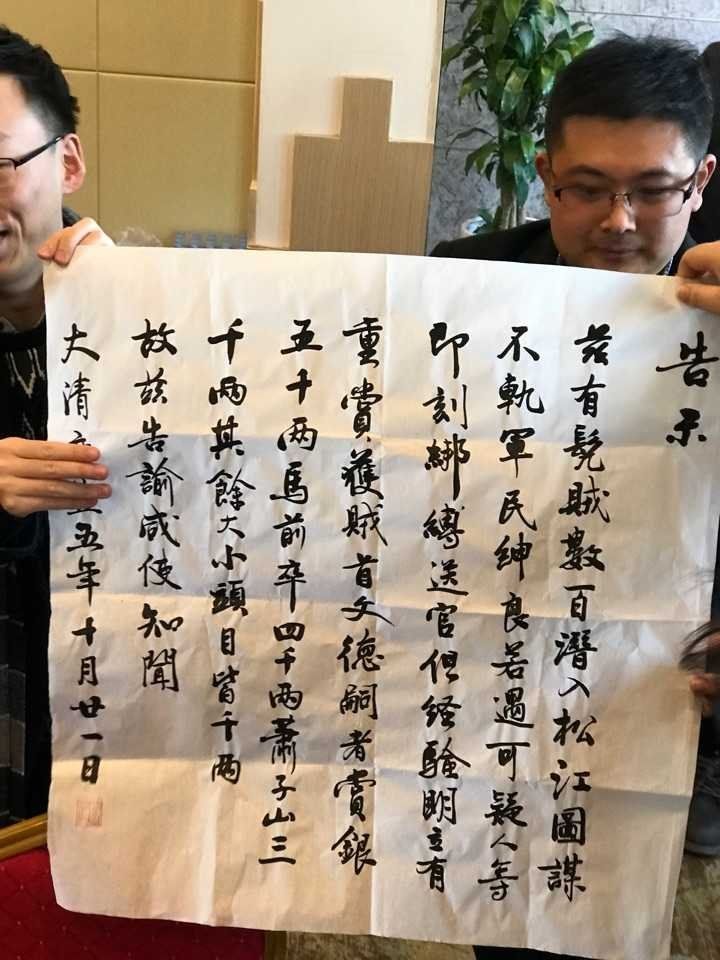 告示
茲有髡賊數百潛入松江圖謀
不軌軍民紳良若遇可疑人等
即刻綁縛送官但經驗明立有
重賞獲賊首文德嗣者賞銀
五千兩馬前卒四千兩蕭子山三
千兩其餘大小頭目皆千兩
故茲告諭咸使知聞
大清 五年十月廿一日